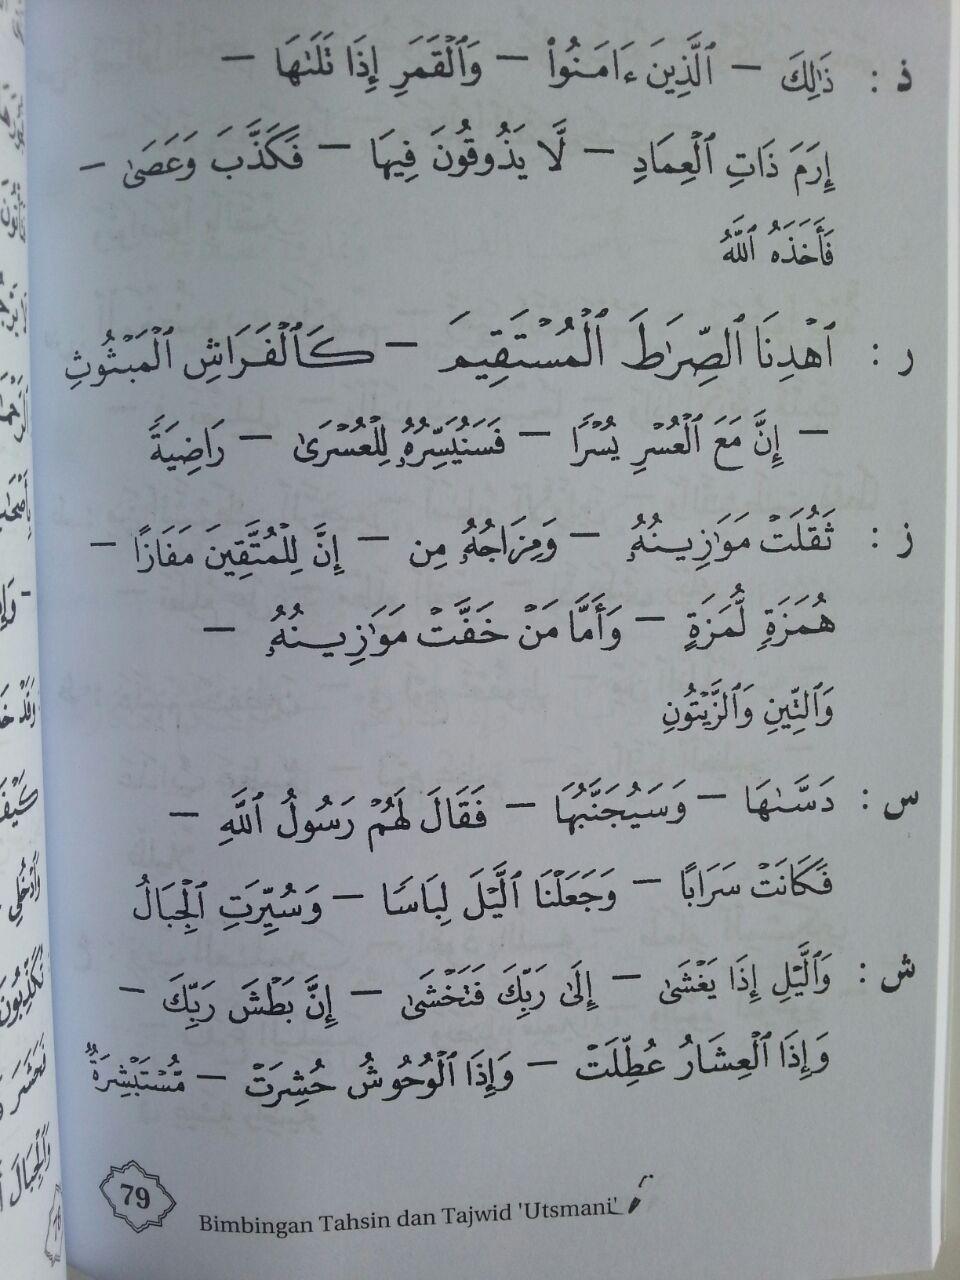 ذ : ذَٰلِكَ – ٱلَّذِينَ ءَامَنُوا۟ – وَٱلْقَمَرِ إِذَا تَلَىٰهَا –
إِرَمَ ذَاتِ ٱلْعِمَادِ – لَّا يَذُوقُونَ فِيهَا – فَكَذَّبَ وَعَصَىٰ –
فَأَخَذَهُ ٱللَّهُ
ر : ٱهْدِنَا ٱلصِّرَٰطَ ٱلْمُسْتَقِيمَ – كَٱلْفَرَاشِ ٱلْمَبْثُوثِ
– إِنَّ مَعَ ٱلْعُسْرِ يُسْرًا – فَسَنُيَسِّرُهُۥ لِلْعُسْرَىٰ – رَاضِيَةً
ز : ثَقُلَتْ مَوَٰزِينُهُۥ – وَمِزَاجُهُۥ مِن – إِنَّ لِلْمُتَّقِينَ مَفَازًا –
هُمَزَةٍ لُّمَزَةٍ – وَأَمَّا مَنْ خَفَّتْ مَوَٰزِينُهُۥ –
وَٱلتِّينِ وَٱلزَّيْتُونِ
س : دَسَّىٰهَا – وَسَيُجَنَّبُهَا – فَقَالَ لَهُمْ رَسُولُ ٱللَّهِ –
فَكَانَتْ سَرَابًا – وَجَعَلْنَا ٱلَّيْلَ لِبَاسًا – وَسُيِّرَتِ ٱلْجِبَالُ
ش : وَٱلَّيْلِ إِذَا يَغْشَىٰ – إِلَىٰ رَبِّكَ فَتَخْشَىٰ – إِنَّ بَطْشَ رَبِّكَ –
وَإِذَا ٱلْعِشَارُ عُطِّلَتْ – وَإِذَا ٱلْوُحُوشُ حُشِرَتْ – مُّسْتَبْشِرَةٌ
79 Bimbingan Tahsin dan Tajwid 'Utsmani'